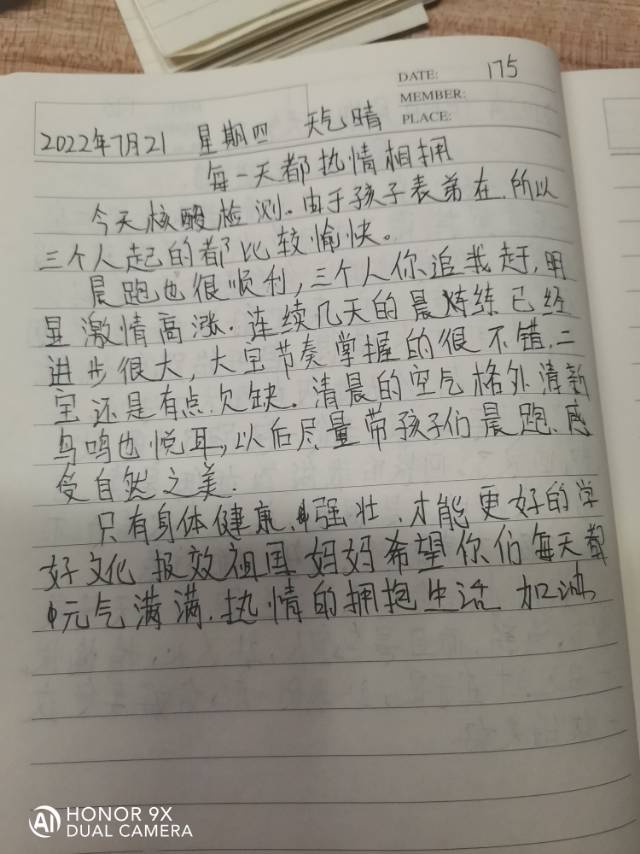 DATE: 175
MEMBER:
PLACE:
2022年7月21 星期四 天气晴
每一天都热情相拥
今天核酸检测.由于孩子表弟在.所以
三个人起的都比较愉快。
晨跑也很顺利,三个人你追我赶,明
显激情高涨.连续几天的晨炼练已经
进步很大,大宝节奏掌握的很不错.二
宝还是有点欠缺.清晨的空气格外清新
鸟鸣也悦耳,以后尽量带孩子们晨跑.感
受自然之美.
只有身体健康.强壮.才能更好的学
好文化报效祖国妈妈希望你们每天都
元气满满.热情的拥抱生活 加油
HONOR 9X
DUAL CAMERA